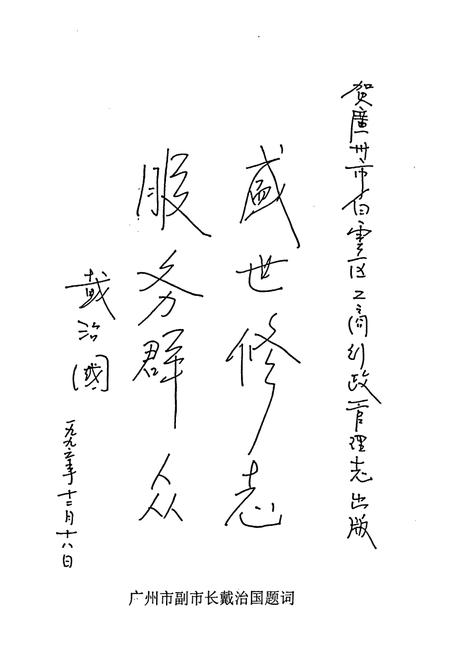 贺廣州市白雲区工商行政管理志出版
盛世修志
服务群众
戴治國
一九九五年十二月十八日
广州市副市长戴治国题词